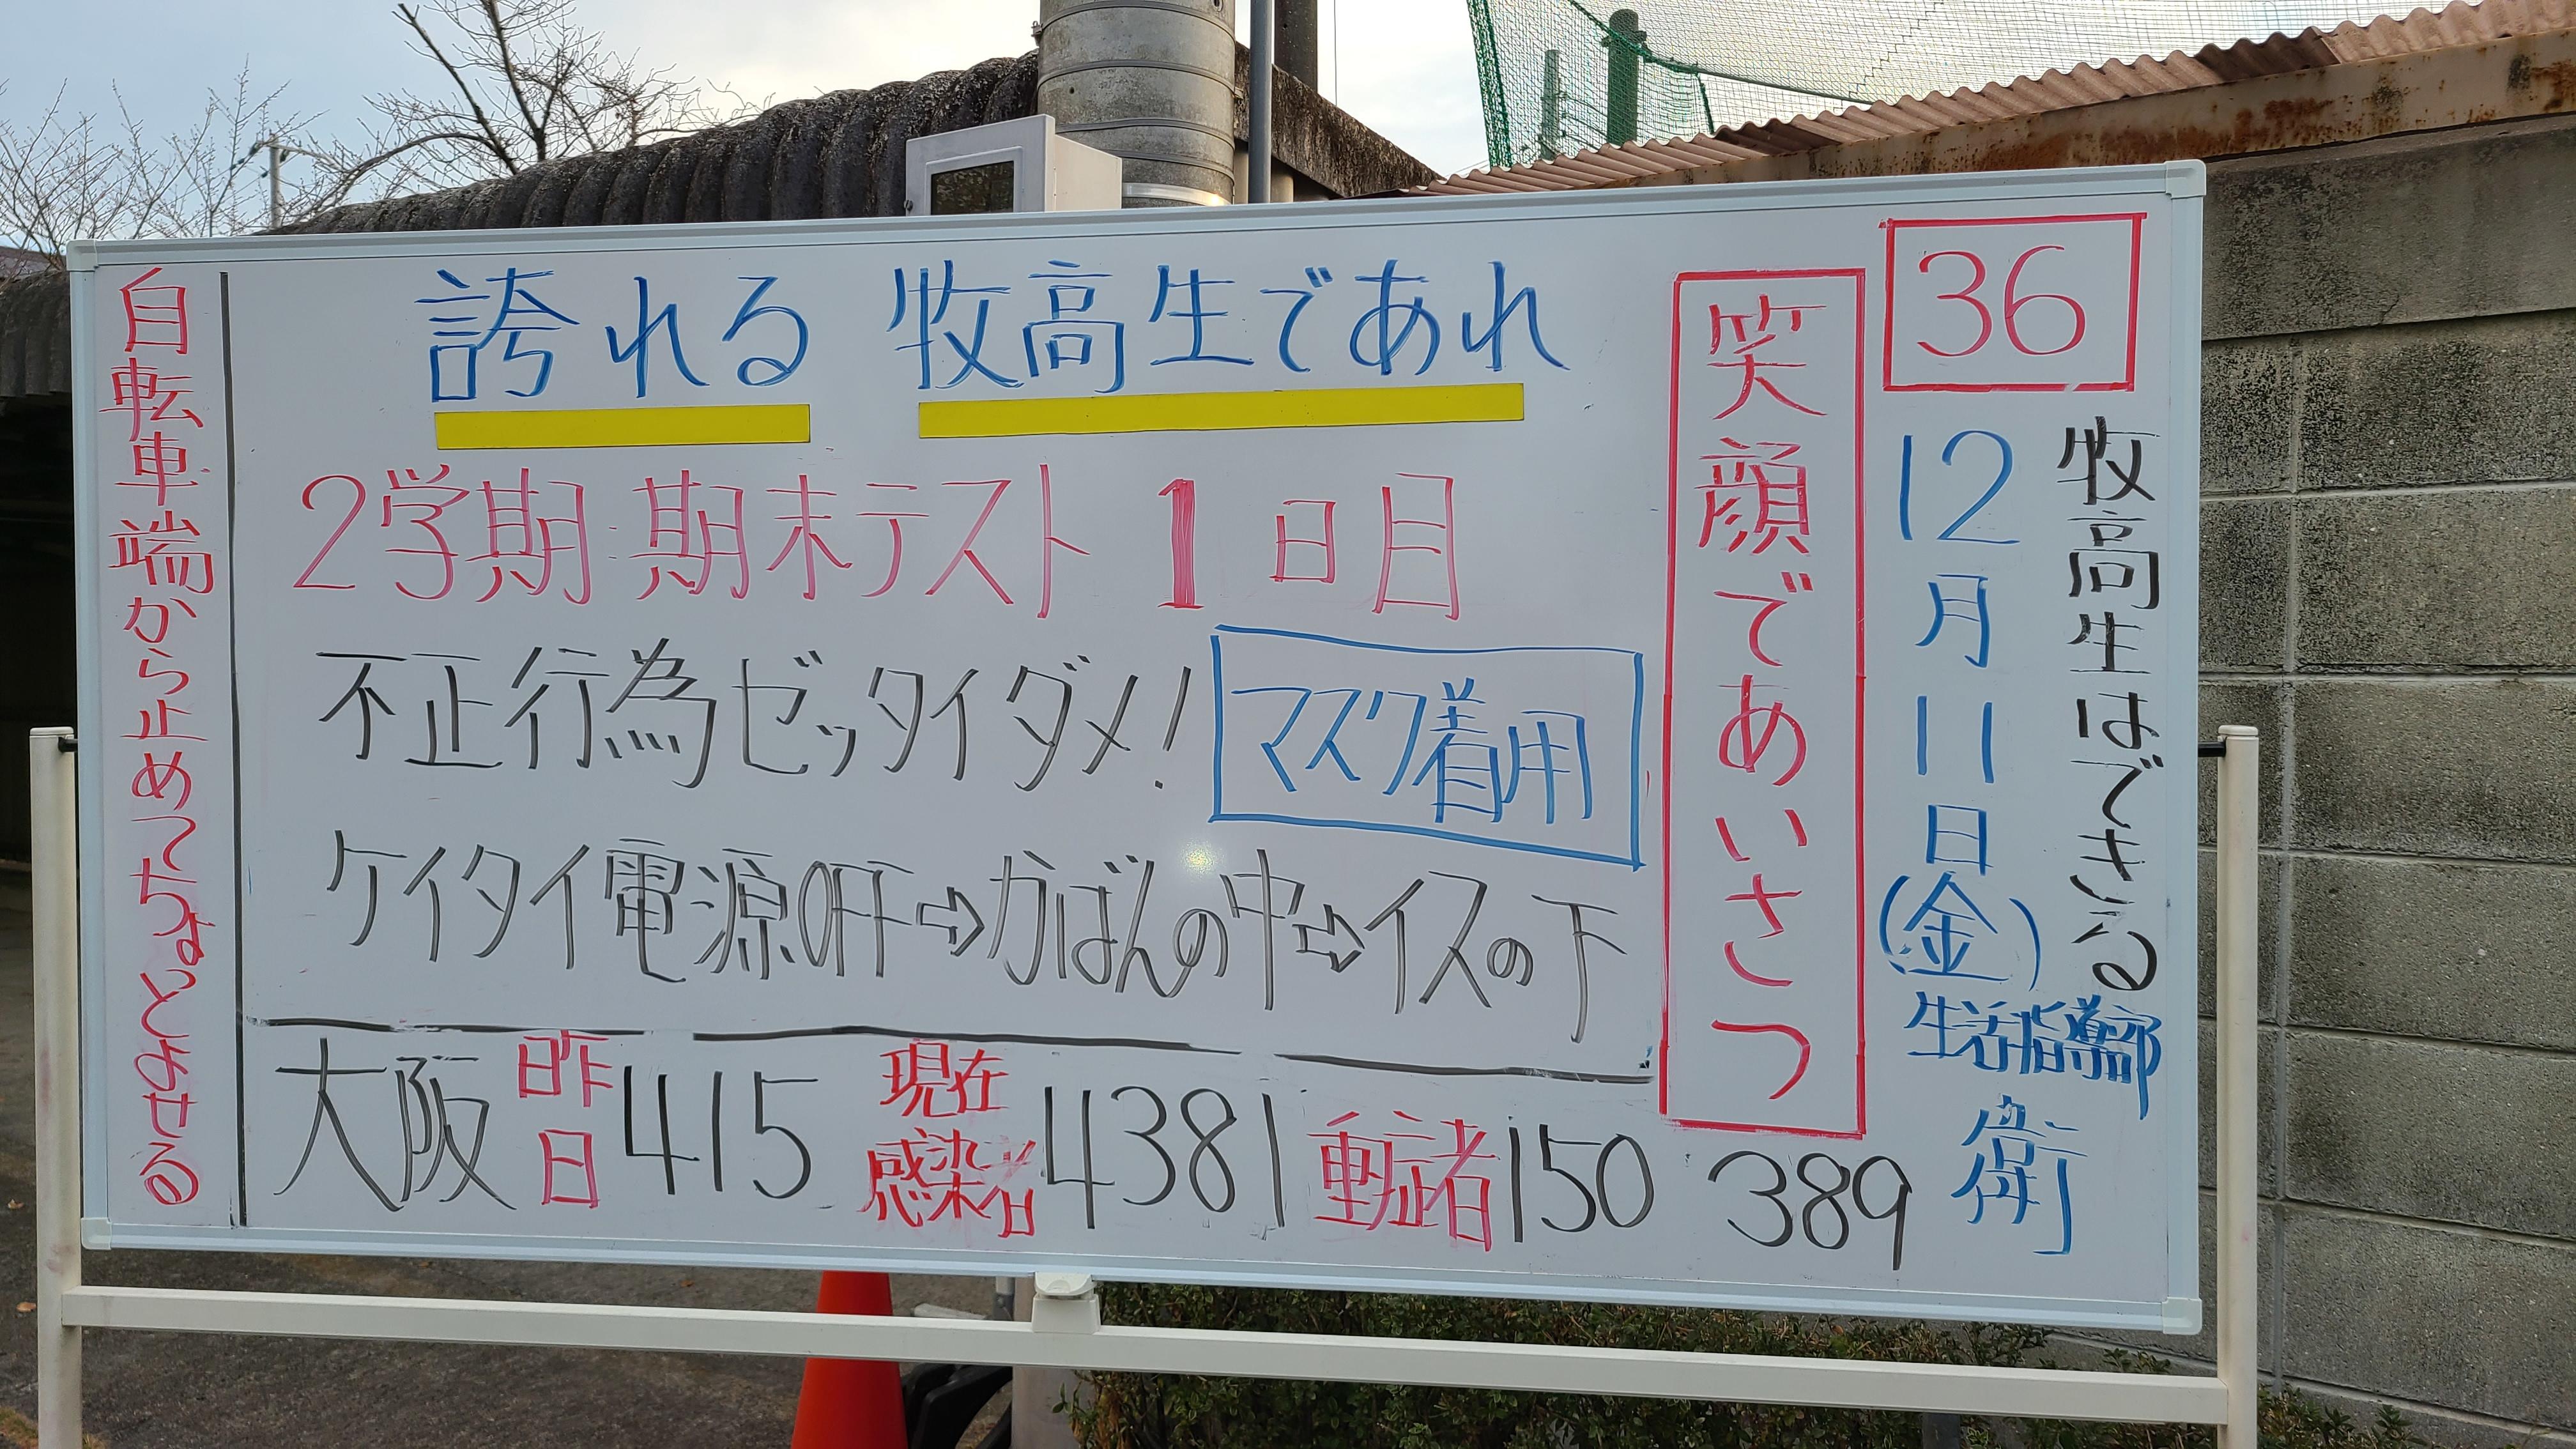 36
牧高生はできる
12月11日(金)
生活指導部
衛
笑顔であいさつ
誇れる 牧高生であれ
2学期 期末テスト 1日目
不正行為ゼッタイダメ!
マスク着用
ケイタイ電源OFF⇨かばんの中⇨イスの下
大阪 昨日 415 現在感染者 4381 重症者 150 389
自転車端から止めてちょっとよせる